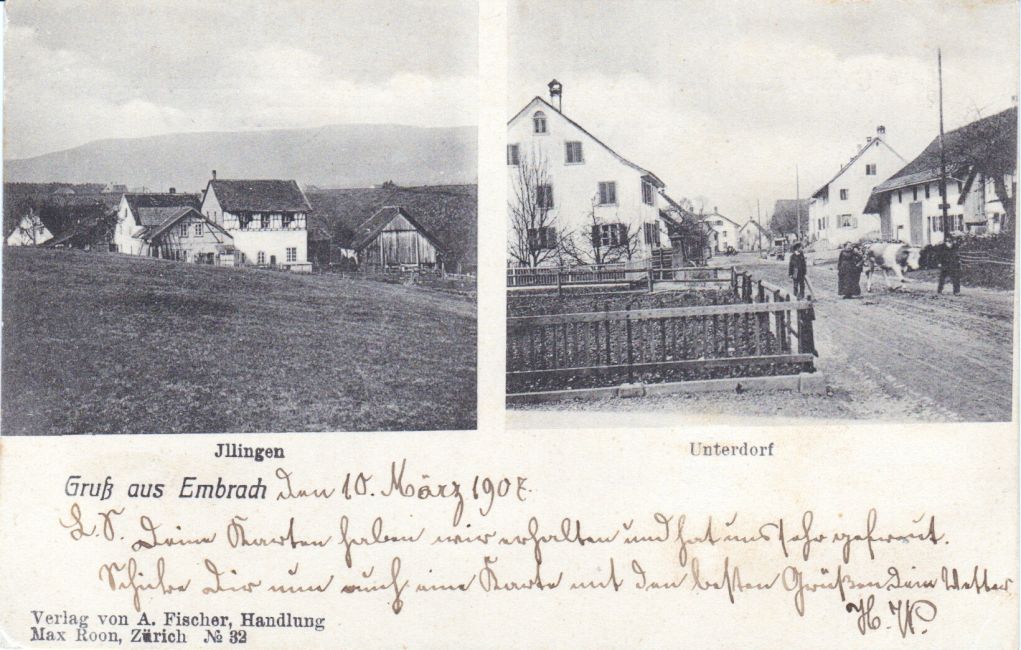 Jllingen
Unterdorf
Gruß aus Embrach den 10. März 1907.
L. S. Deine Karten haben wir erhalten und hat uns sehr gefreut.
Schike Dir nun auch eine Karte mit den besten Grüßen dein Vetter
H. W.
Verlag von A. Fischer, Handlung
Max Roon, Zürich № 32